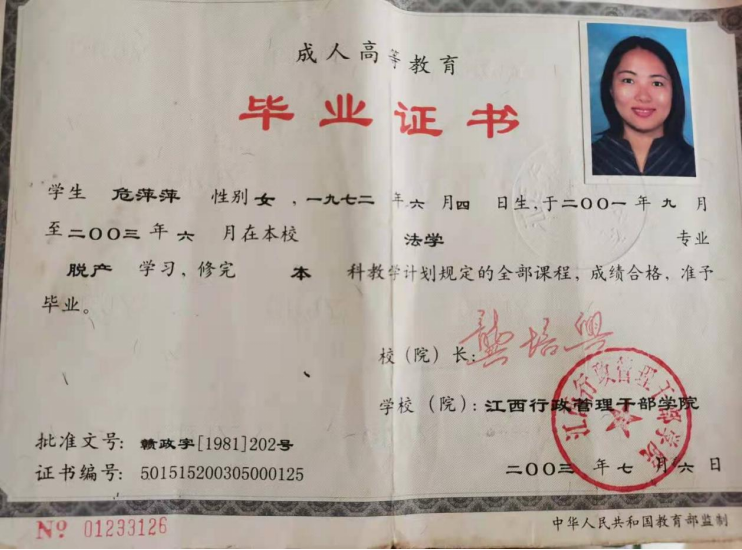 成人高等教育
毕业证书
学生 危萍萍 性别 女，一九七二 年 六 月 四 日生，于二〇〇一 年 九 月
至二〇〇三 年 六 月在本校 法学 专业
脱产 学习，修完 本 科教学计划规定的全部课程，成绩合格，准予
毕业。
校（院）长：龚培兴
学校（院）：江西行政管理干部学院
江西行政管理干部学院
批准文号：赣政字[1981]202号
证书编号：501515200305000125
二〇〇三 年 七 月 六 日
№ 01233126
中华人民共和国教育部监制